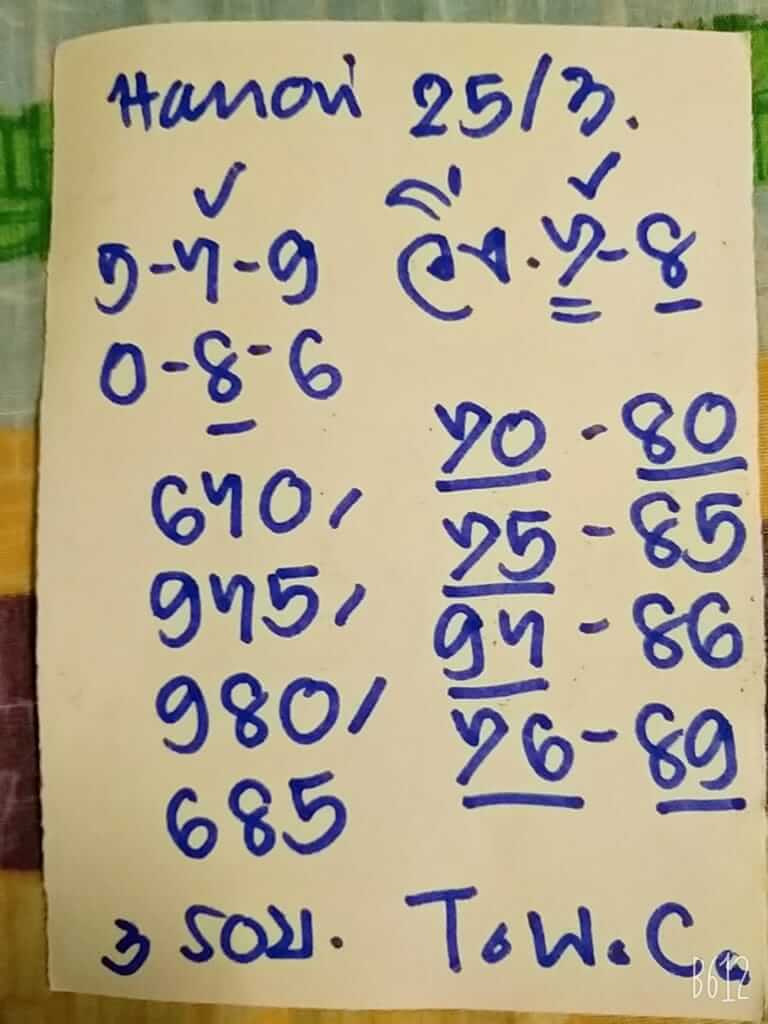 Hanoi 25/3.
5-7-9 วิ่ง.7-8
0-8-6
70-80
670/
75-85
975/
97-86
980/
76-89
685
3 รอบ. T.W.C.
B612